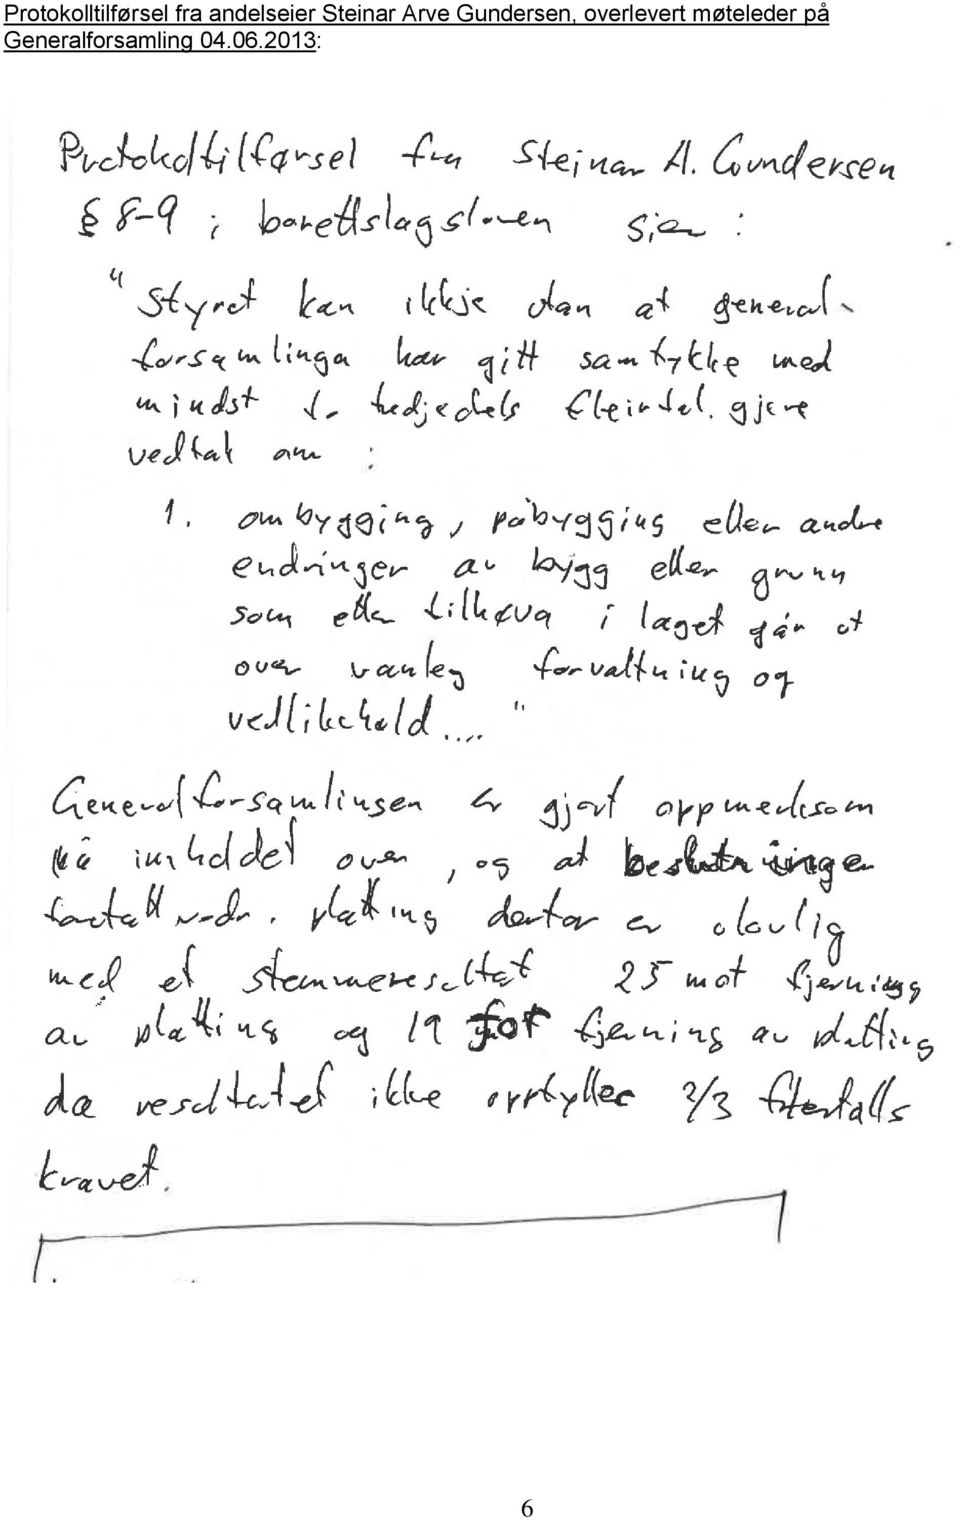 Protokolltilførsel fra andelseier Steinar Arve Gundersen, overlevert møteleder på
Generalforsamling 04.06.2013:
Protokolltilførsel fra Steinar A. Gundersen
§ 8-9 i borettslagsloven sier :
" Styret kan ikkje utan at general-
forsamlinga har gitt samtykke med
mindst to tredjedels fleirtal. gjere
vedtak om :
1. ombygging, påbygging eller andre
endringer av bygg eller grunn
som etter tilhøva i laget går ut
over vanleg forvaltning og
vedlikehold .... "
Generalforsamlingen er gjort oppmerksom
på innholdet over, og at beslutninger
fortatt vedr. platting derfor er ulovlig
med et stemmeresultat 25 mot fjerning
av platting og 19 for fjerning av platting
da resultatet ikke oppfyller 2/3 flertalls
kravet.
6